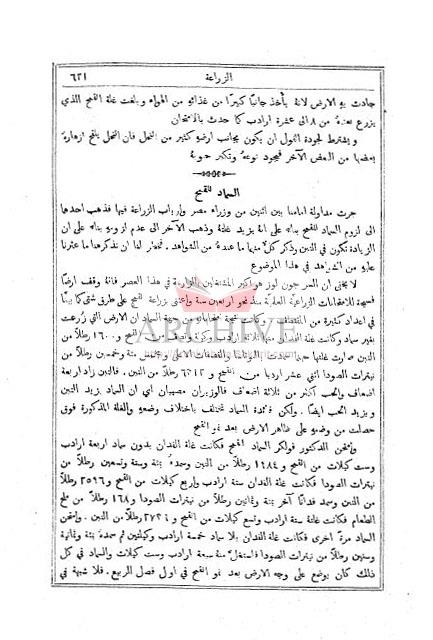 الزراعة ٦٢١
جادت به الارض لانهُ يأخذ جانبًا كبيرًا من غذائهِ من الهواء وبلغت غلة القمح الذي
يزرع بعدهُ من ٨ الى عشرة ارادب كما حدث بالامتحان
ويشترط لجودة الفول ان يكون بجانب ارضهِ كثير من النحل فان النحل يلقح ازهارهُ
بعضها من البعض الآخر فيجود نوعهُ وتكبر حبوبهُ
السماد للقمح
جرت مداولة امامنا بين اثنين من وزراء مصر وارباب الزراعة فيها فذهب احدها
الى لزوم السماد للقمح بناءً على انهُ يزيد غلتهُ وذهب الآخر الى عدم لزومهِ بناءً على ان
الزيادة تكون في التبن وذكر كلٌّ منهما ما عندهُ من الشواهد. لنا ان نذكر هنا ما عثرنا
عليهِ من الشواهد في هذا الموضوع
لا يخفى ان السر جون لوز هو اكبر المشتغلين بالزراعة في هذا العصر فانهُ وقف ارضًا
فسيحة للامتحانات الزراعيَّة العلميَّة منذ نحو اربعين سنة وامتحن زراعة القمح على طرق شتى كما بينَّا
في اعداد كثيرة من المقتطف. وكانت نتيجة امتحاناتهِ من جهة السماد ان الارض التي زُرعت
بغير سماد وكانت غلة الفدان منها ثلاثة ارادب من القمح و١٦٠٠ رطلًا من
التبن صارت غلتها حينما سمدت
نيترات الصودا اثني عشر اردبا من القمح و ٦٢١٣ رطلًا من التبن. فالتبن زاد اربعة
اضعاف والحب اكثر من ثلاثة اضعاف فالوزيران مصيبان اي ان السماد يزيد التبن
ويزيد الحب ايضًا. ولكن فائدة السماد تختلف باختلاف وضعهِ والغلة المذكورة فوق
حصلت من وضعهِ على ظاهر الارض بعد نمو القمح
وامتحن الدكتور فولكر السماد للقمح فكانت غلة الفدان بدون سماد اربعة ارادب
وست كيلات من القمح و ١٩٨٤ رطلًا من التبن وسمدهُ بمئة وستة وتسعين رطلًا من
نيترات الصودا فكانت غلة الفدان ستة ارادب واربع كيلات من القمح و ٢٥٩٦ رطلًا
من التبن وسمد فدانًا آخر بمئة وثمانين رطلًا من نيترات الصودا و ١٦٨ رطلًا من ملح
الطعام فكانت غلتهُ ستة ارادب وتسع كيلات من القمح و ٢٧٣٤ رطلًا من التبن. وامتحن
السماد مرةً اخرى فكانت غلة الفدان بلا سماد خمسة ارادب وكيلتين ثم سمدهُ بمئة وثمانية
وستين رطلًا من نيترات الصودا فاستغلَّ منهُ سبعة ارادب وست كيلات والسماد في كل
ذلك كان يوضع على وجه الارض بعد نمو القمح في اول فصل الربيع. فلا شبهة في
ARCHIVE